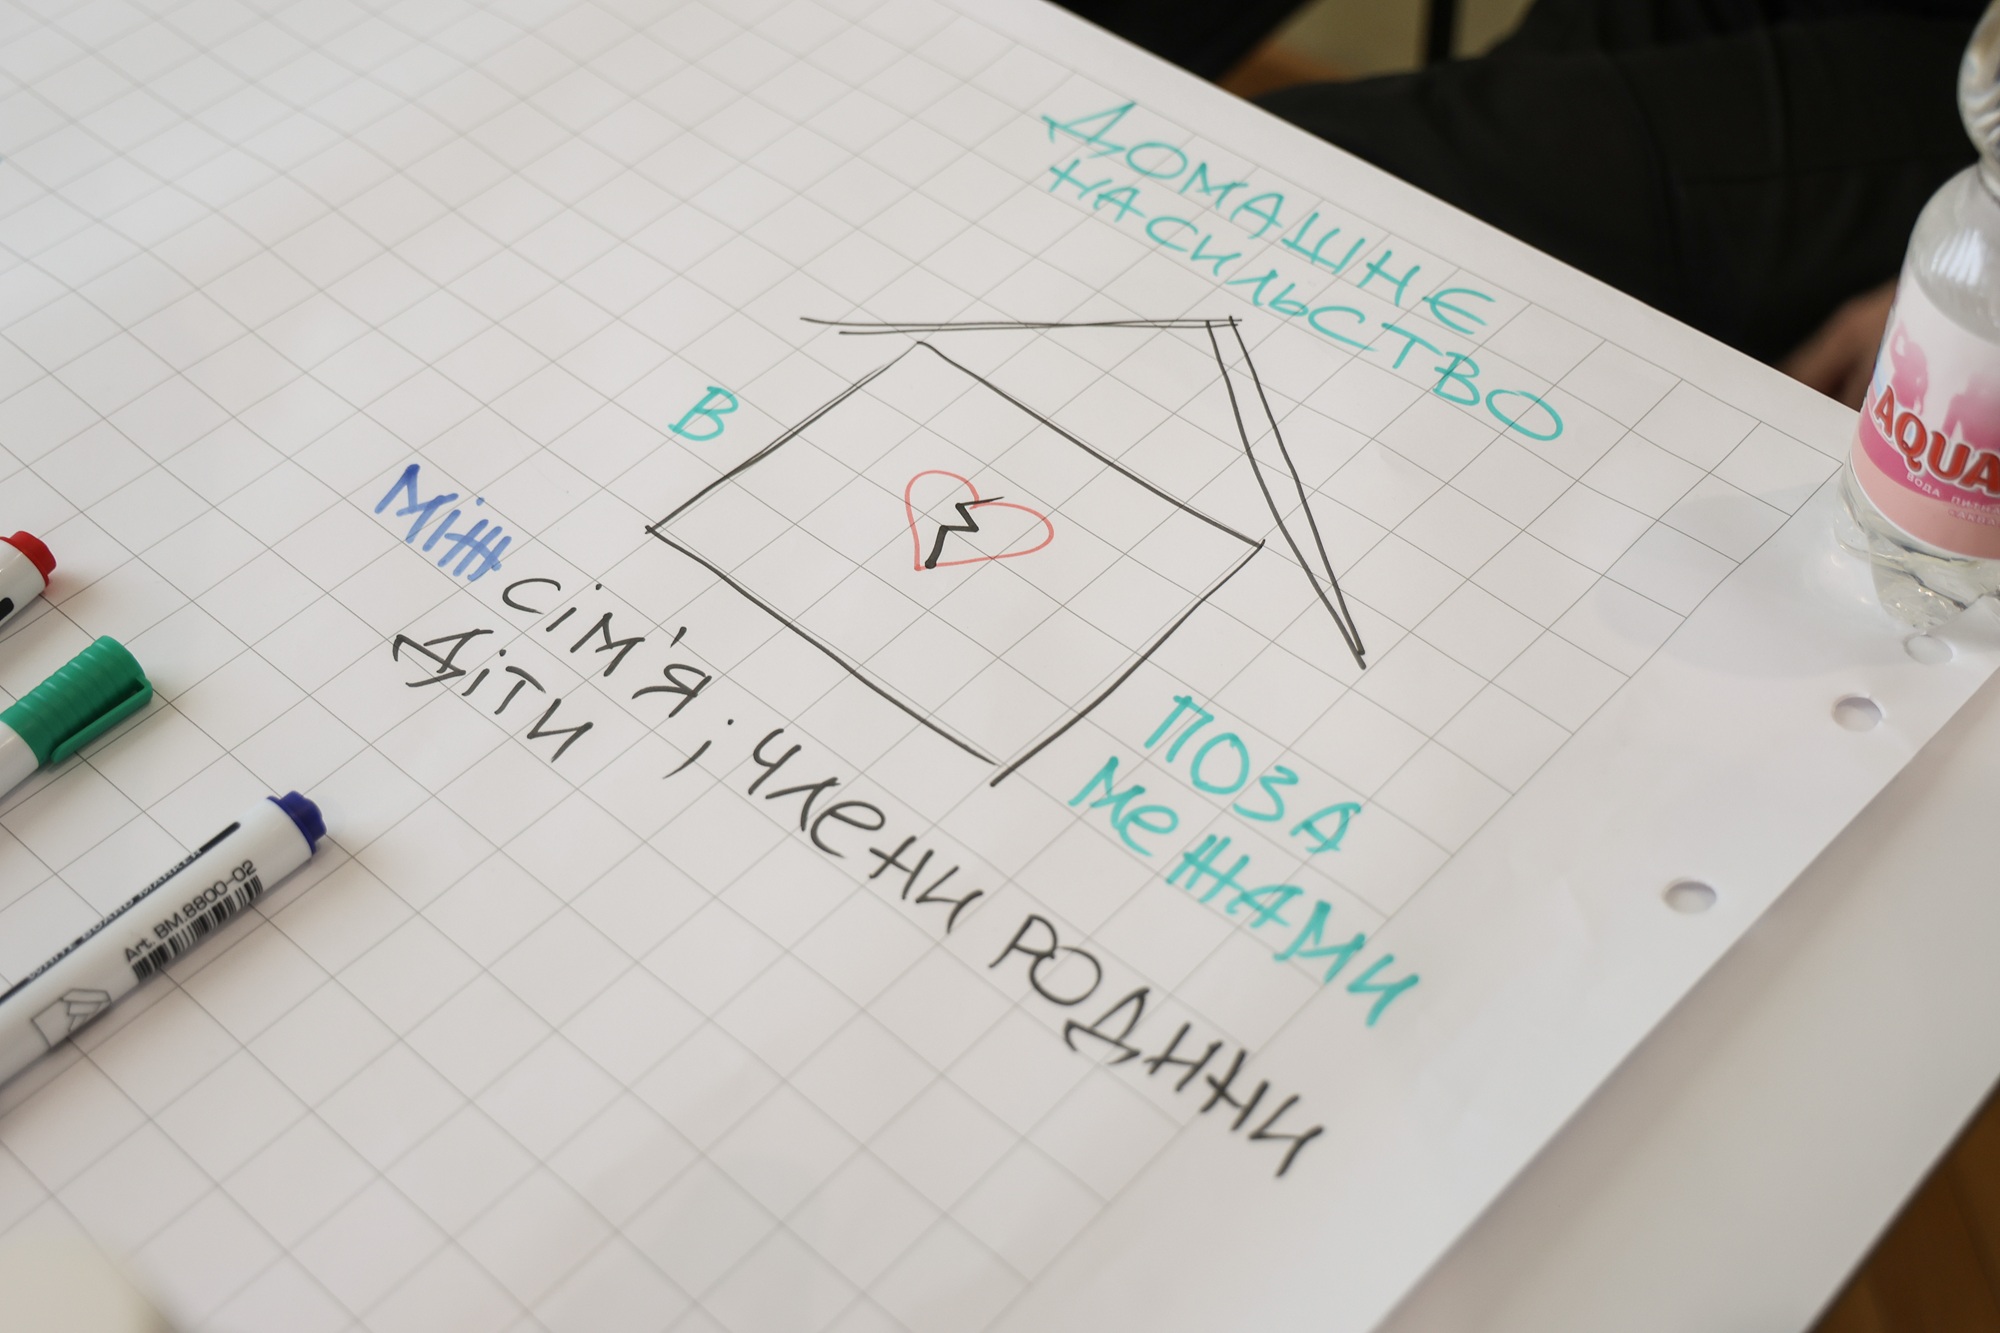 ДОМАШНЄ
НАСИЛЬСТВО
В
МІЖ
СІМ'Я ; ЧЛЕНИ РОДННИ
ДІТИ
ПОЗА
МЕЖАМИ
AQUA
ВОДА ПИТН
Art. BM.8800-02